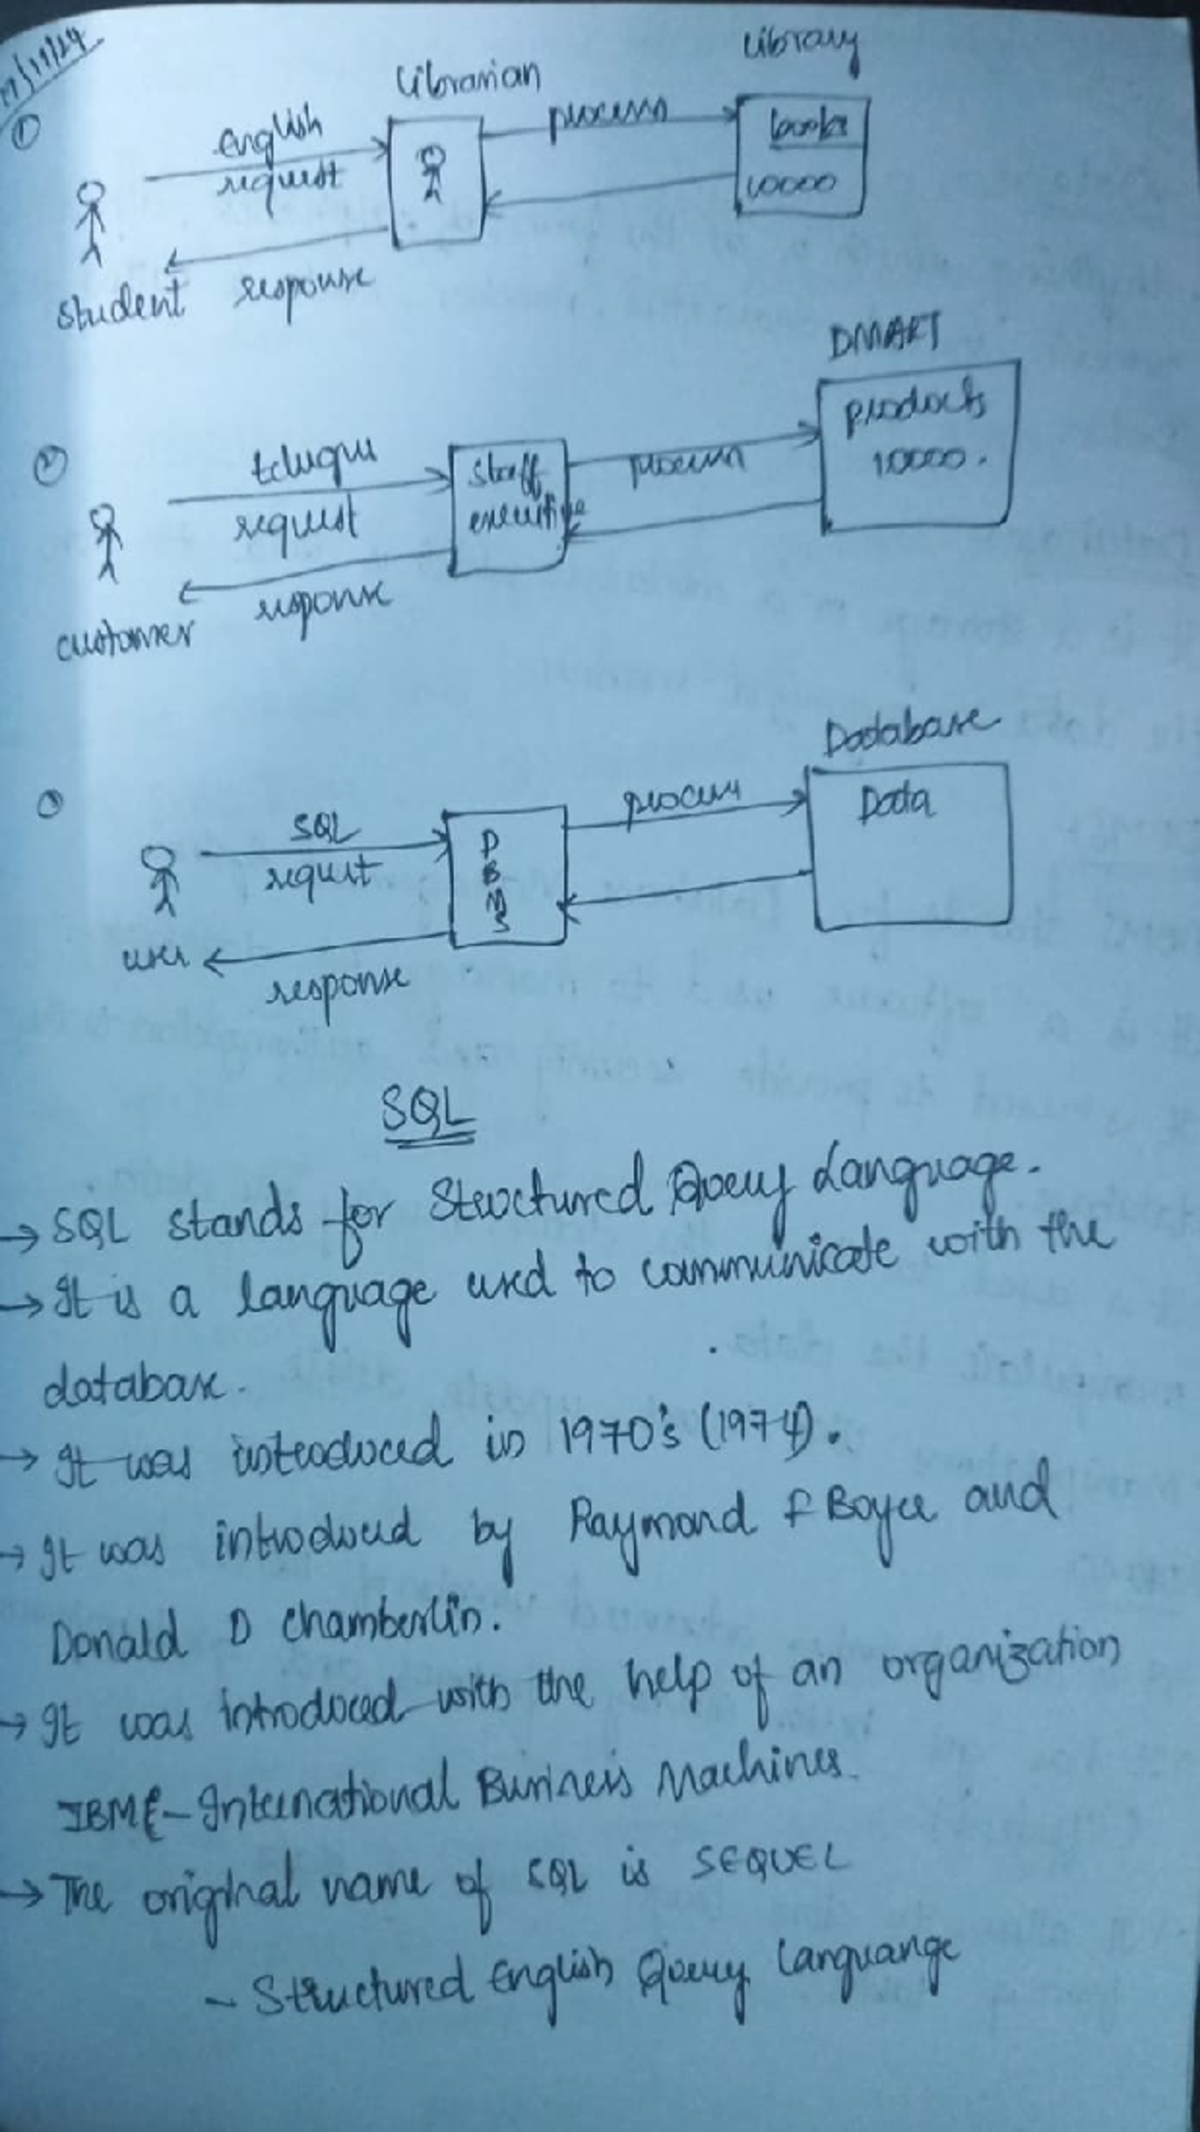 ①
Librarian
Library
English
request
process
books
10000
student
response
DMART
②
telugu
request
staff
executive
process
products
10000.
customer
response
Database
SQL
request
DBMS
process
Data
user
response
SQL
→ SQL stands for Structured Query Language.
→ It is a language used to communicate with the
database.
→ It was introduced in 1970's (1974).
→ It was introduced by Raymond F Boyce and
Donald D Chamberlin.
→ It was introduced with the help of an organization
IBM - International Business Machines.
→ The original name of SQL is SEQUEL
- Structured English Query Languange